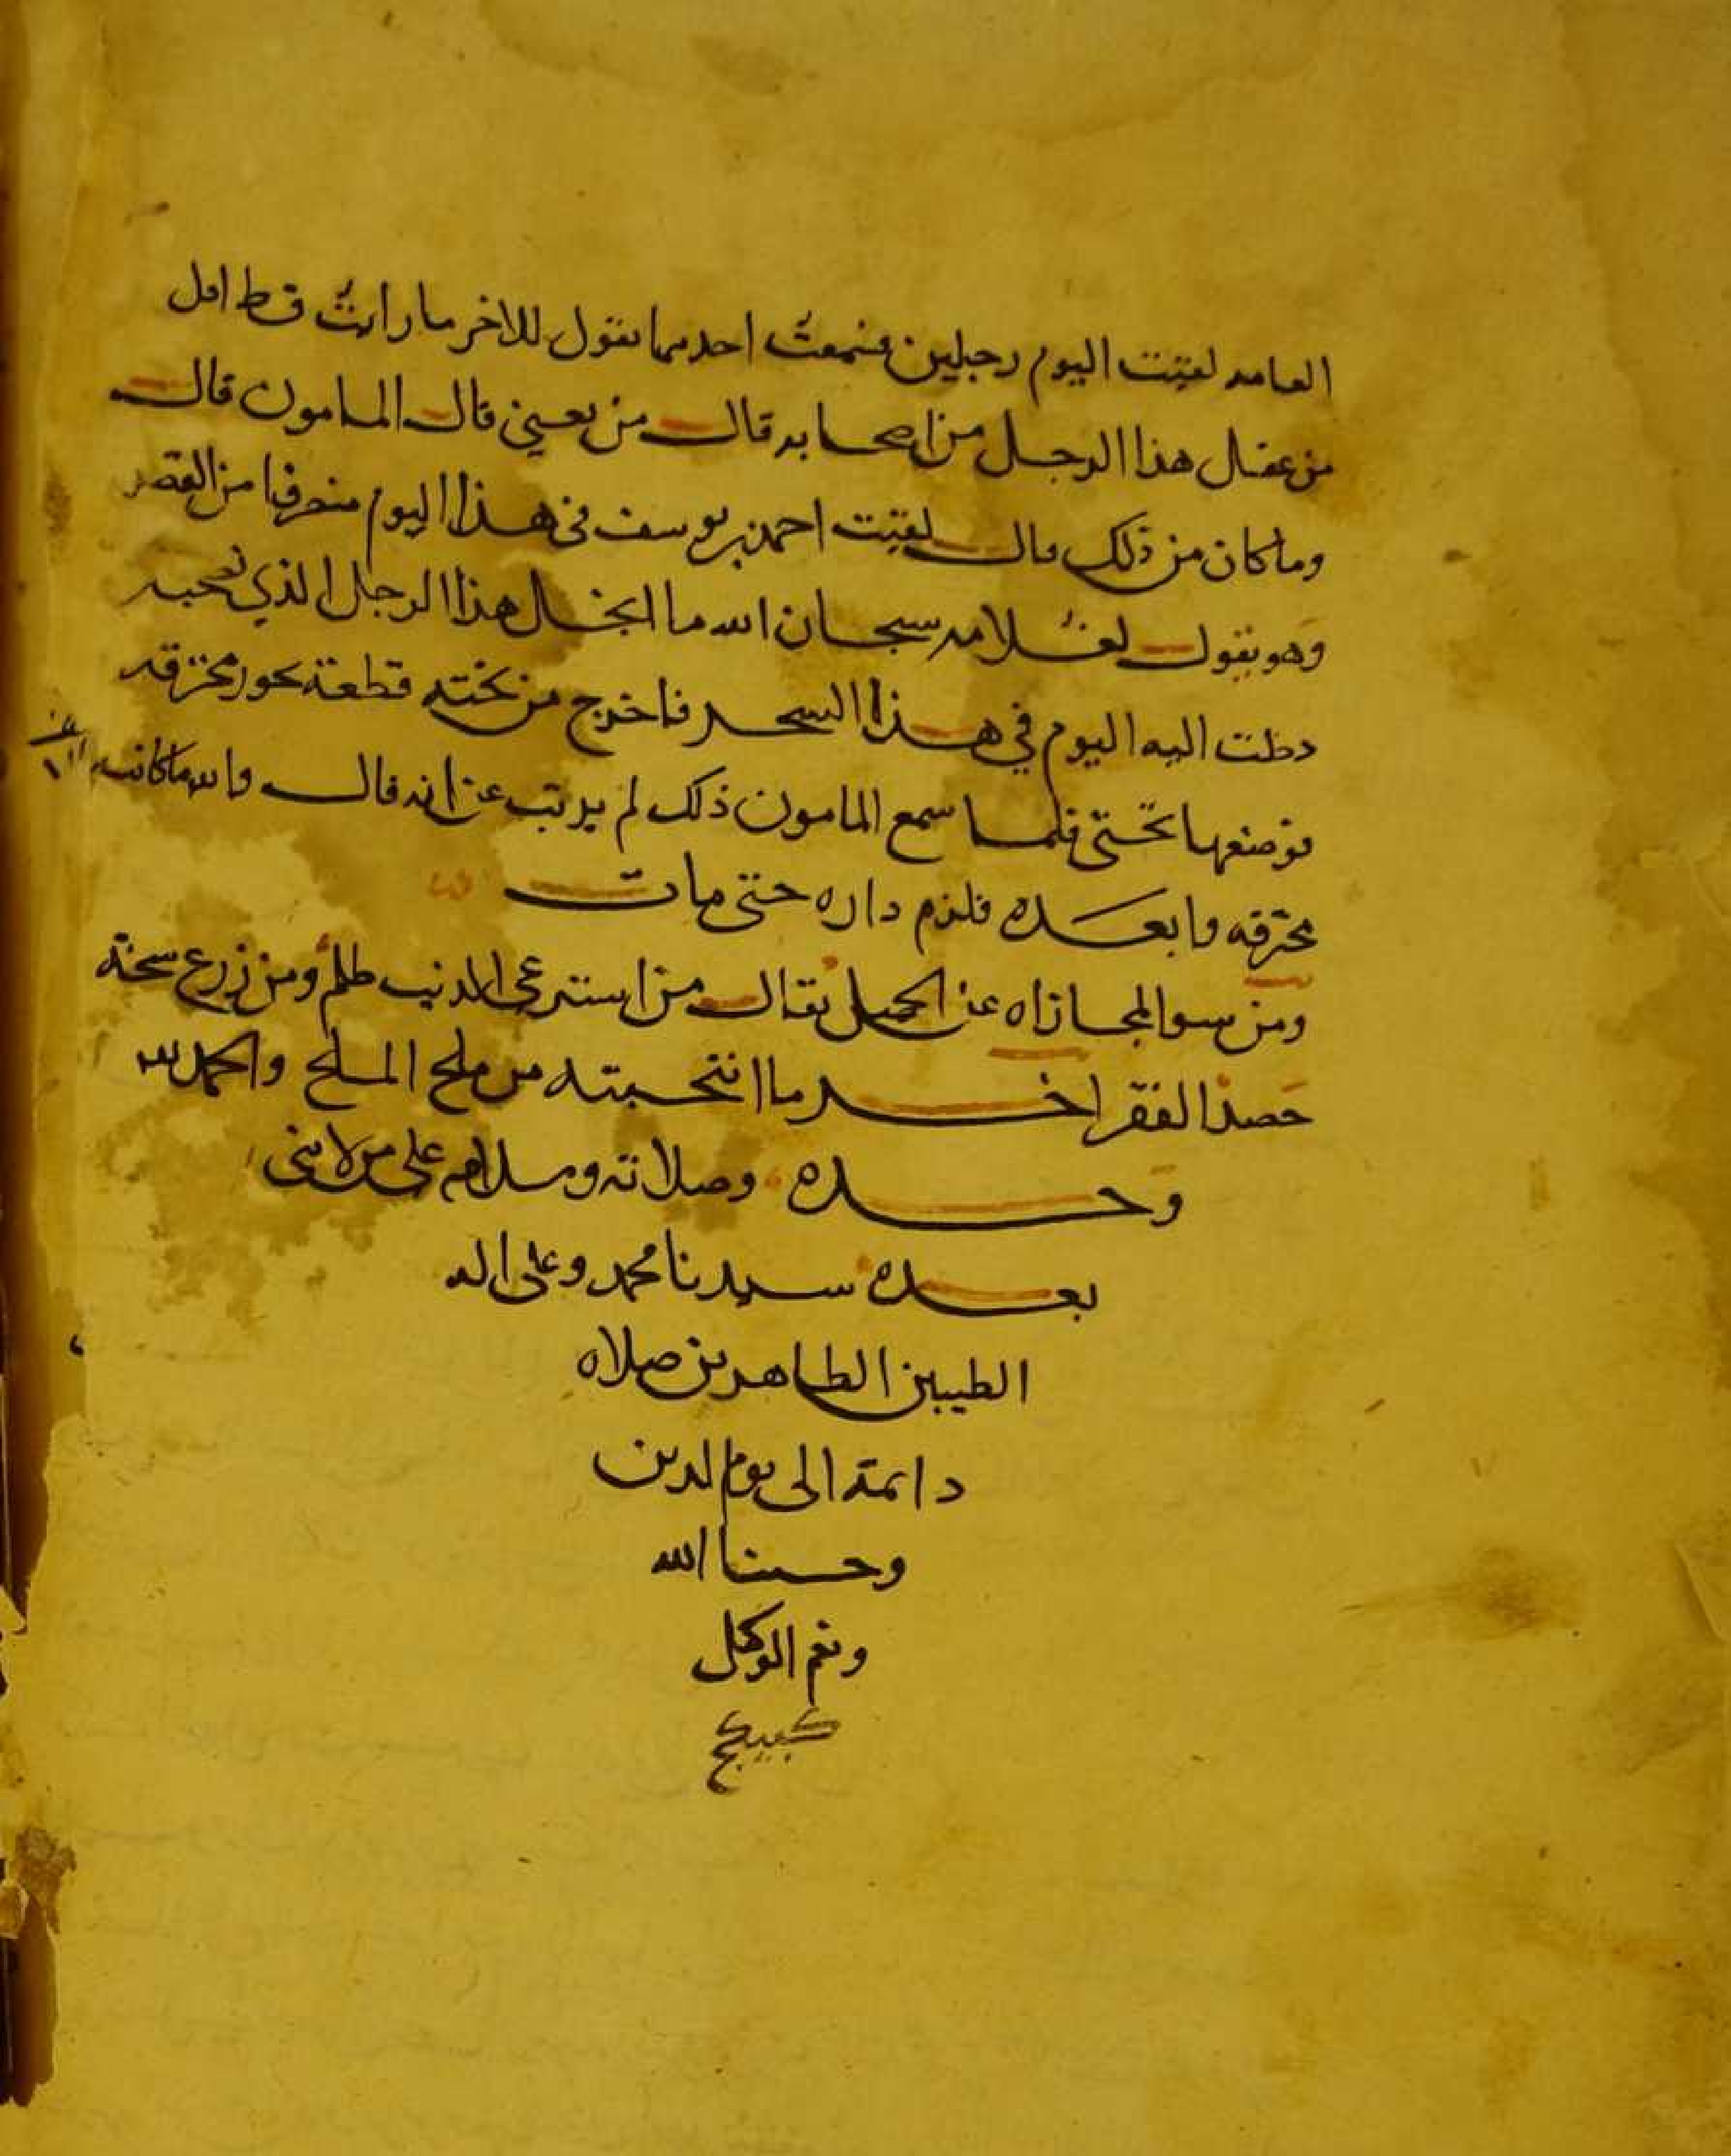 العامه لقيت اليوم رجلين فسمعت احدهما يقول للاخر ما رايت قط اقل
من عقل هذا الرجل من اصحابه قال من يعني قال المامون قال
وما كان من ذلك قال لقيت احمد بن يوسف في هذا اليوم منصرفا من القصر
وهو يقول لغلامه سبحان الله ما ابخل هذا الرجل الذي نصحبه
دخلت اليه اليوم في هذا السحر فاخرج من تحته قطعة بخور محترقه
فوضعها تحتي فلما سمع المامون ذلك لم يرتب عن انه قال والله ما كانت
محترقه وابعده فلزم داره حتى مات
ومن سوا المجازاه عن الجميل يقال من استرعى الذيب ظلم ومن زرع سبخة
حصد الفقر اخر ما انتخبته من ملح الملح والحمد لله
وحده وصلاته وسلامه على من لا نبي
بعده سيدنا محمد وعلى اله
الطيبين الطاهرين صلاه
دائمة الى يوم الدين
وحسبنا الله
ونعم الوكيل
كبيكج